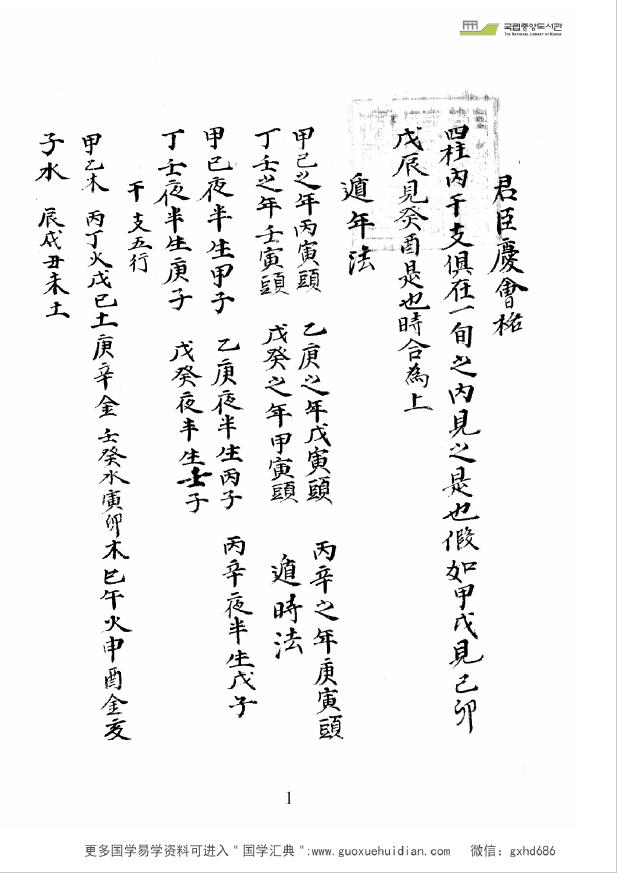 국립중앙도서관
THE NATIONAL LIBRARY OF KOREA
君臣慶會格
四柱內干支俱在一旬之內見之是也假如甲戌見己卯
戊辰見癸酉是也時合為上
遁年法
甲己之年丙寅頭 乙庚之年戊寅頭 丙辛之年庚寅頭
丁壬之年壬寅頭 戊癸之年甲寅頭 遁時法
甲己夜半生甲子 乙庚夜半生丙子 丙辛夜半生戊子
丁壬夜半生庚子 戊癸夜半生壬子
干支五行
甲乙木 丙丁火戊己土庚辛金壬癸水寅卯木巳午火申酉金亥
子水 辰戌丑未土
1
更多国学易学资料可进入＂国学汇典＂:www.guoxuehuidian.com 微信：gxhd686